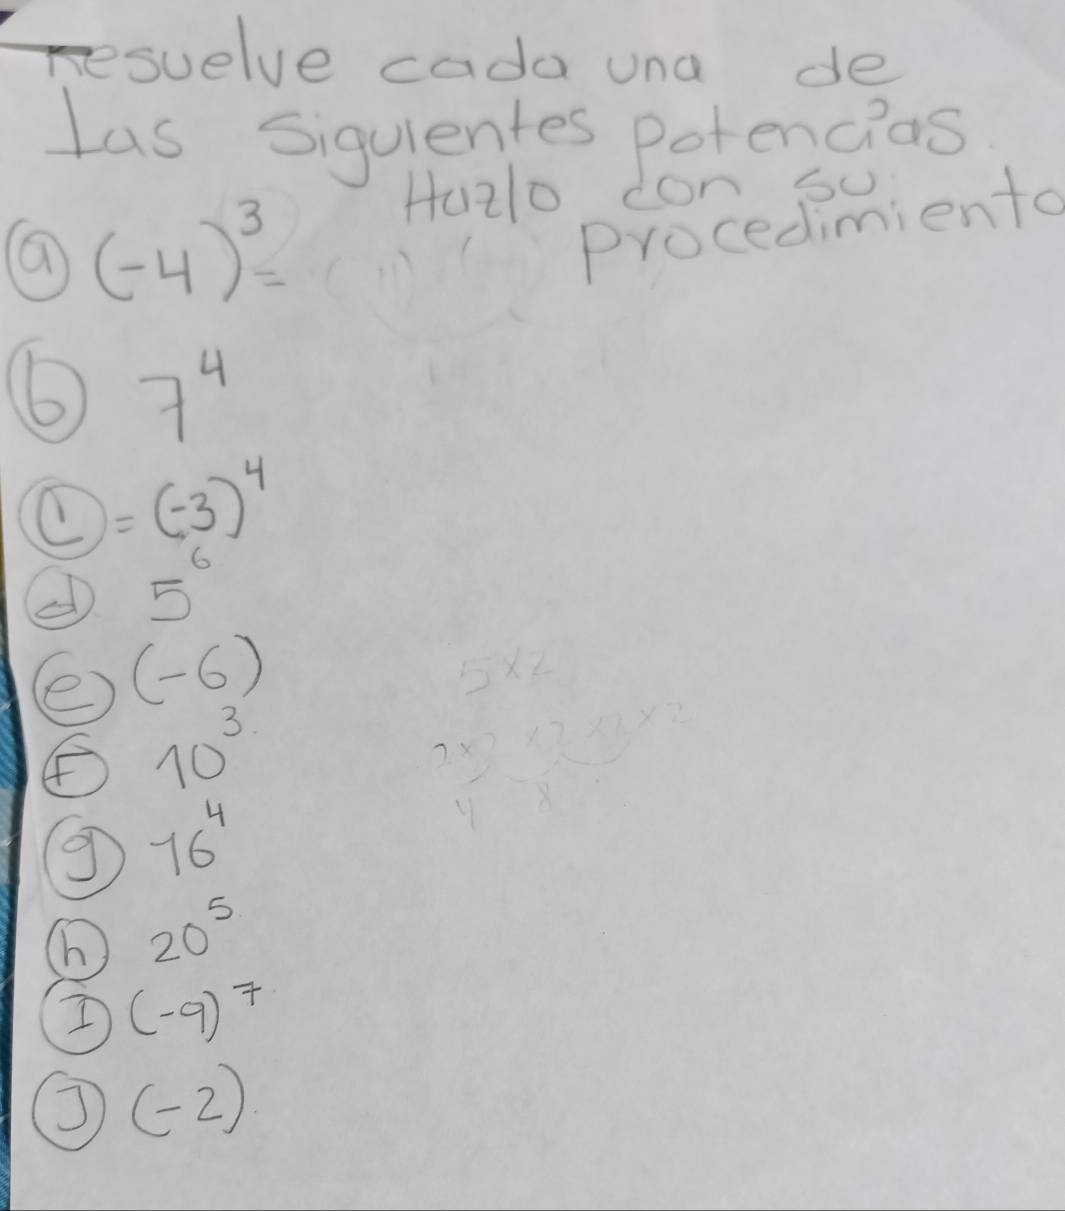 Resuelve cada una de
las siguientes potencias.
Hazlo con su
procedimiento
a (-4)³=
b 7⁴
c = (-3)⁴
d 5⁶
e (-6)
f 10³.
g 16⁴
h 20⁵.
I (-9)⁷
J (-2).
5x2